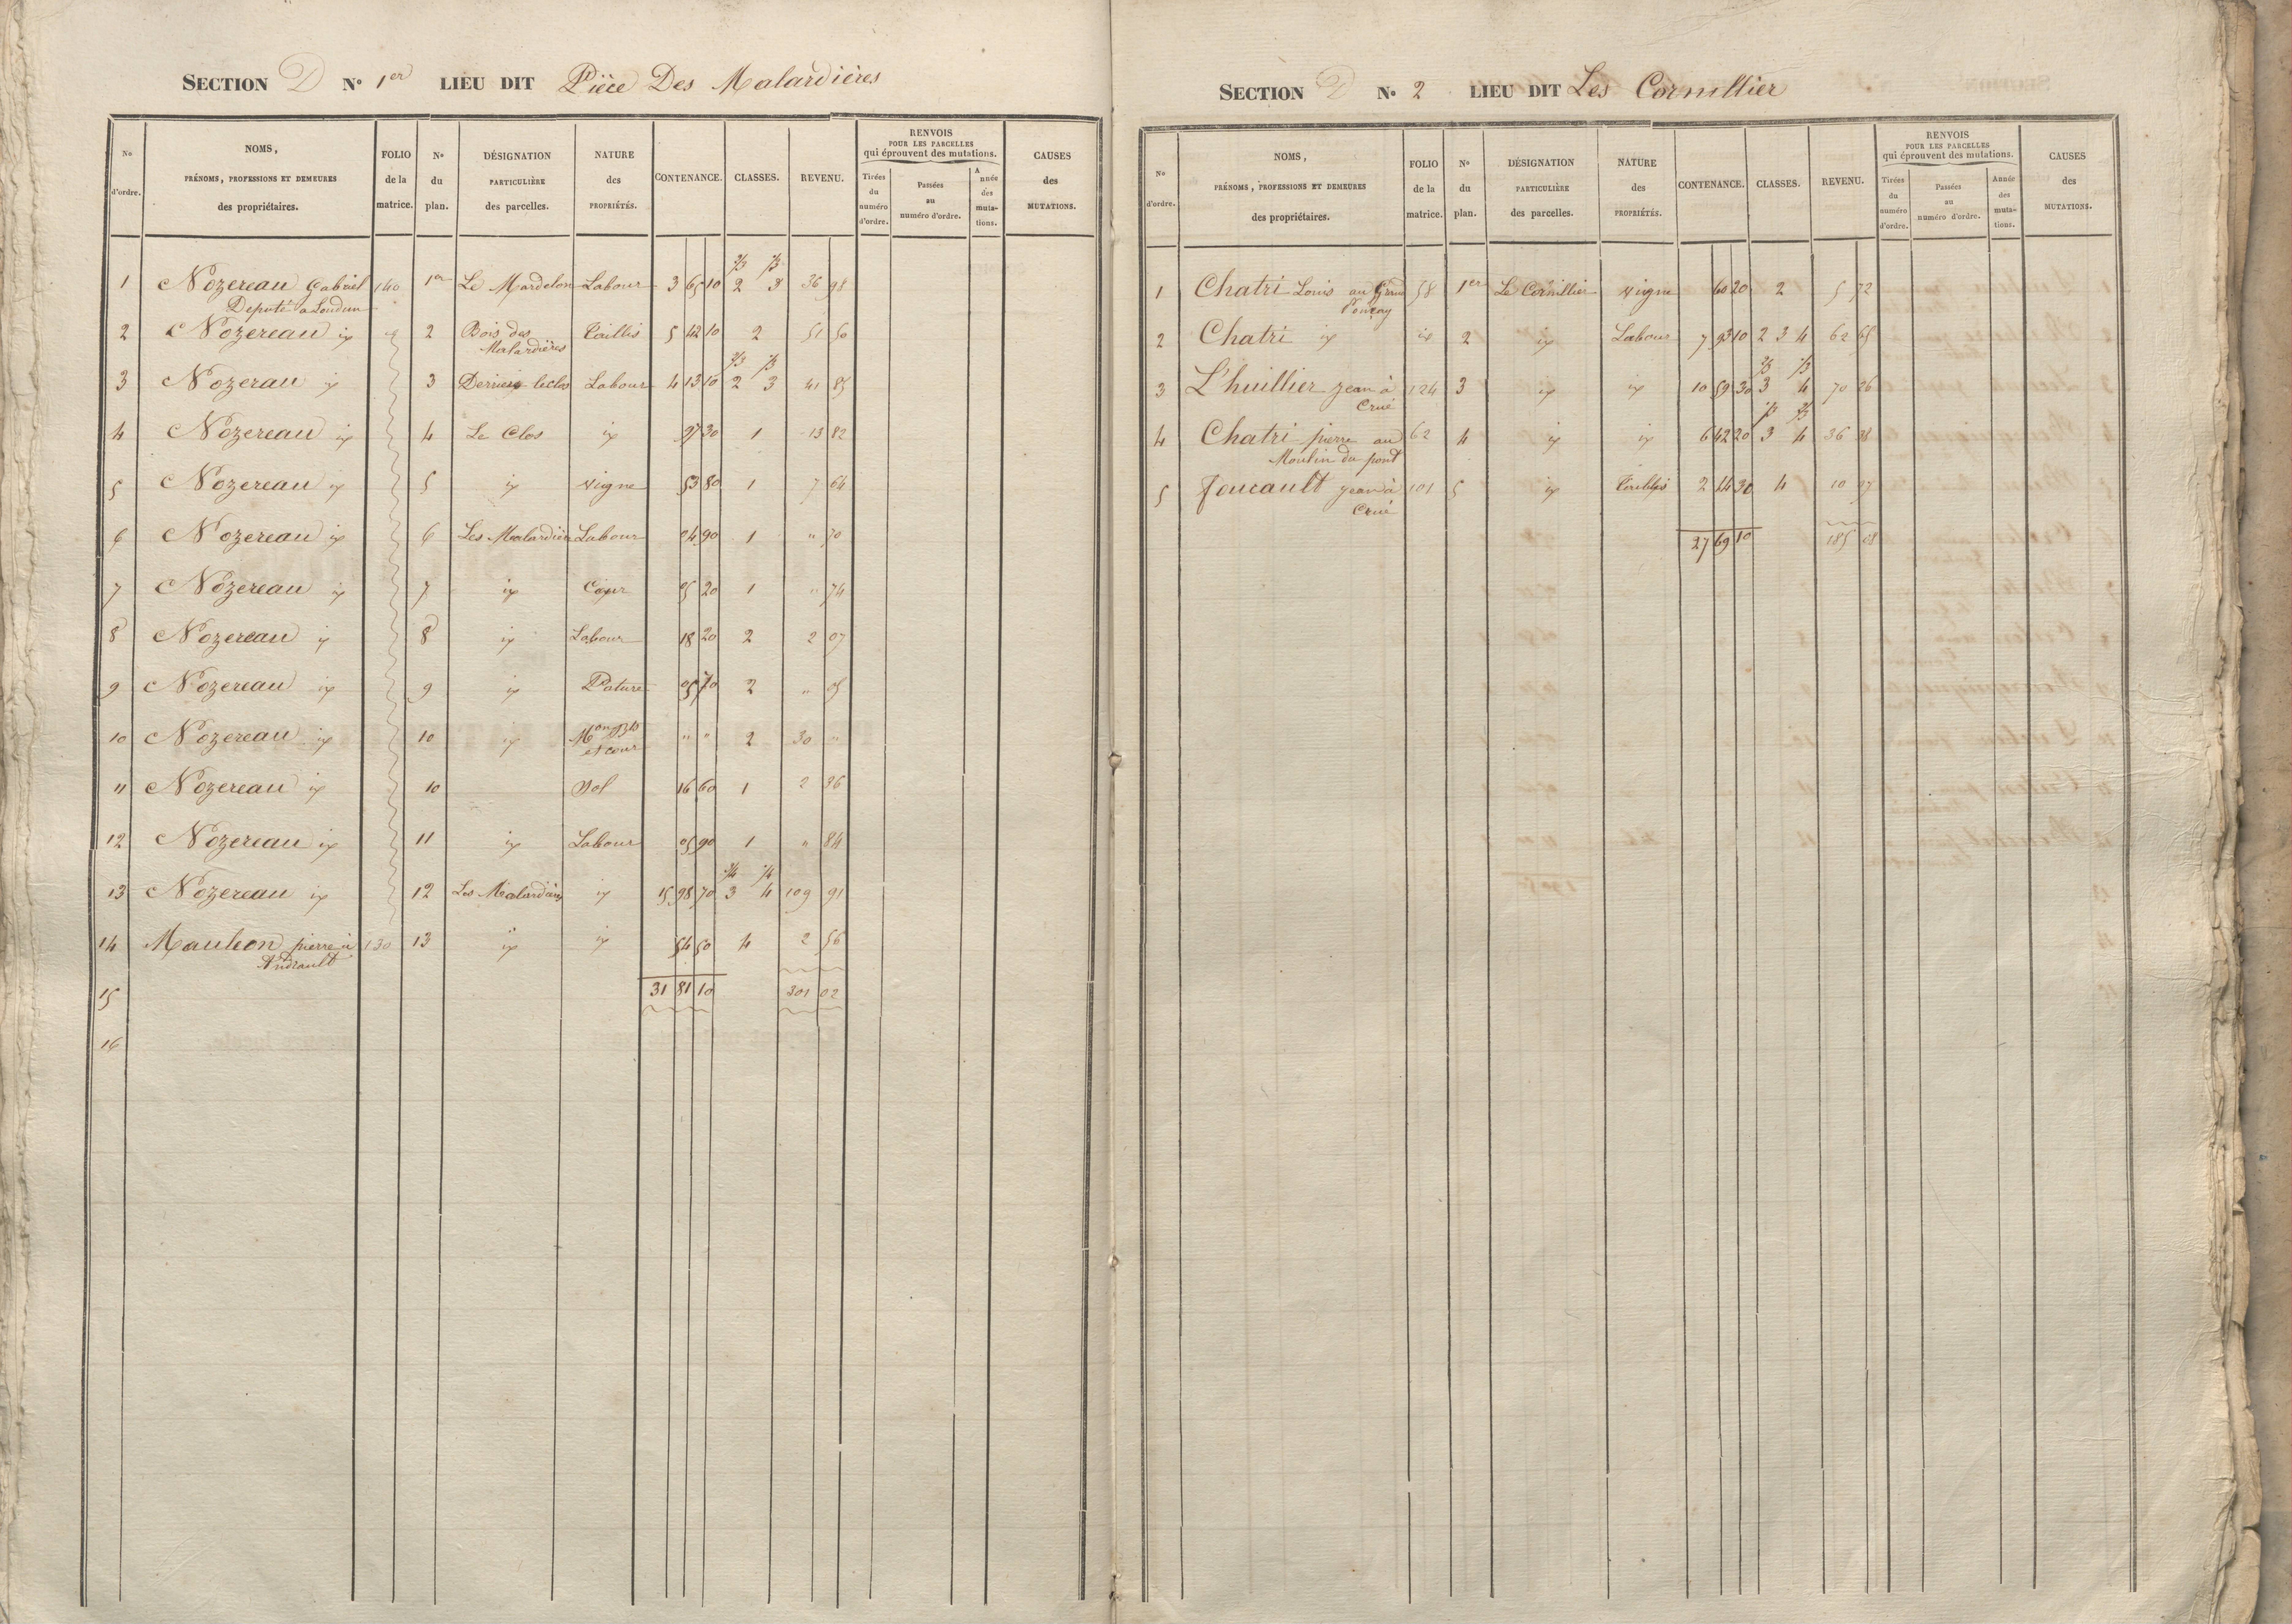 SECTION D N° 1er LIEU DIT Pièce Des Malardières
N° d'ordre. NOMS, PRÉNOMS, PROFESSIONS ET DEMEURES des propriétaires. FOLIO de la matrice. N° du plan. DÉSIGNATION PARTICULIÈRE des parcelles. NATURE des PROPRIÉTÉS. CONTENANCE. CLASSES. REVENU. RENVOIS POUR LES PARCELLES qui éprouvent des mutations. Tirées du numéro d'ordre. Passées au numéro d'ordre. Année des mutations. CAUSES des MUTATIONS.
2/3 1/3
1 Nozereau Gabriel 140 1er Le Mardelon Labour 3 65 10 2 3 36 98
Député a Loudun
2 Nozereau ix 2 Bois des Taillis 5 42 10 2 51 50
Malardières
2/3 1/3
3 Nozerau ix 3 Derriere le clos Labour 4 13 10 2 3 41 85
4 Nozereau ix 4 Le Clos ix 97 30 1 13 82
5 Nozereau ix 5 ix vigne 53 80 1 7 64
6 Nozereau ix 6 Les Malardière Labour 04 90 1 " 70
7 Nozereau ix 7 ix Cour 05 20 1 " 74
8 Nozereau ix 8 ix Labour 18 20 2 2 07
9 Nozereau ix 9 ix Pature 05 70 2 " 05
10 Nozereau ix 10 ix Mon " " 2 30 "
et cour
11 Nozereau ix 10 Sol 16 60 1 2 36
12 Nozereau ix 11 ix Labour 05 90 1 " 84
3/4 1/4
13 Nozereau ix 12 Les Malardière ix 15 98 70 3 4 109 91
14 Mauleon pierre à 130 13 ix ix 54 50 4 2 56
Andrault
15 31 81 10 301 02
16
SECTION D N° 2 LIEU DIT Les Cornillier
N° d'ordre. NOMS, PRÉNOMS, PROFESSIONS ET DEMEURES des propriétaires. FOLIO de la matrice. N° du plan. DÉSIGNATION PARTICULIÈRE des parcelles. NATURE des PROPRIÉTÉS. CONTENANCE. CLASSES. REVENU. RENVOIS POUR LES PARCELLES qui éprouvent des mutations. Tirées du numéro d'ordre. Passées au numéro d'ordre. Année des mutations. CAUSES des MUTATIONS.
1 Chatri Louis au Grand 58 1er Le Cornillier vigne 60 20 2 5 72
Pouzay
2 Chatri ix ix 2 ix Labour 7 93 10 2 3 4 62 65
2/3 1/3
3 L'huillier jean à 124 3 ix ix 10 59 30 3 4 70 26
Crué
1/3 2/3
4 Chatri pierre au 62 4 ix ix 6 42 20 3 4 36 38
Moulin du pont
5 Foucault jean à 101 5 ix Taillis 2 14 30 4 10 07
Crué
27 69 10 185 08